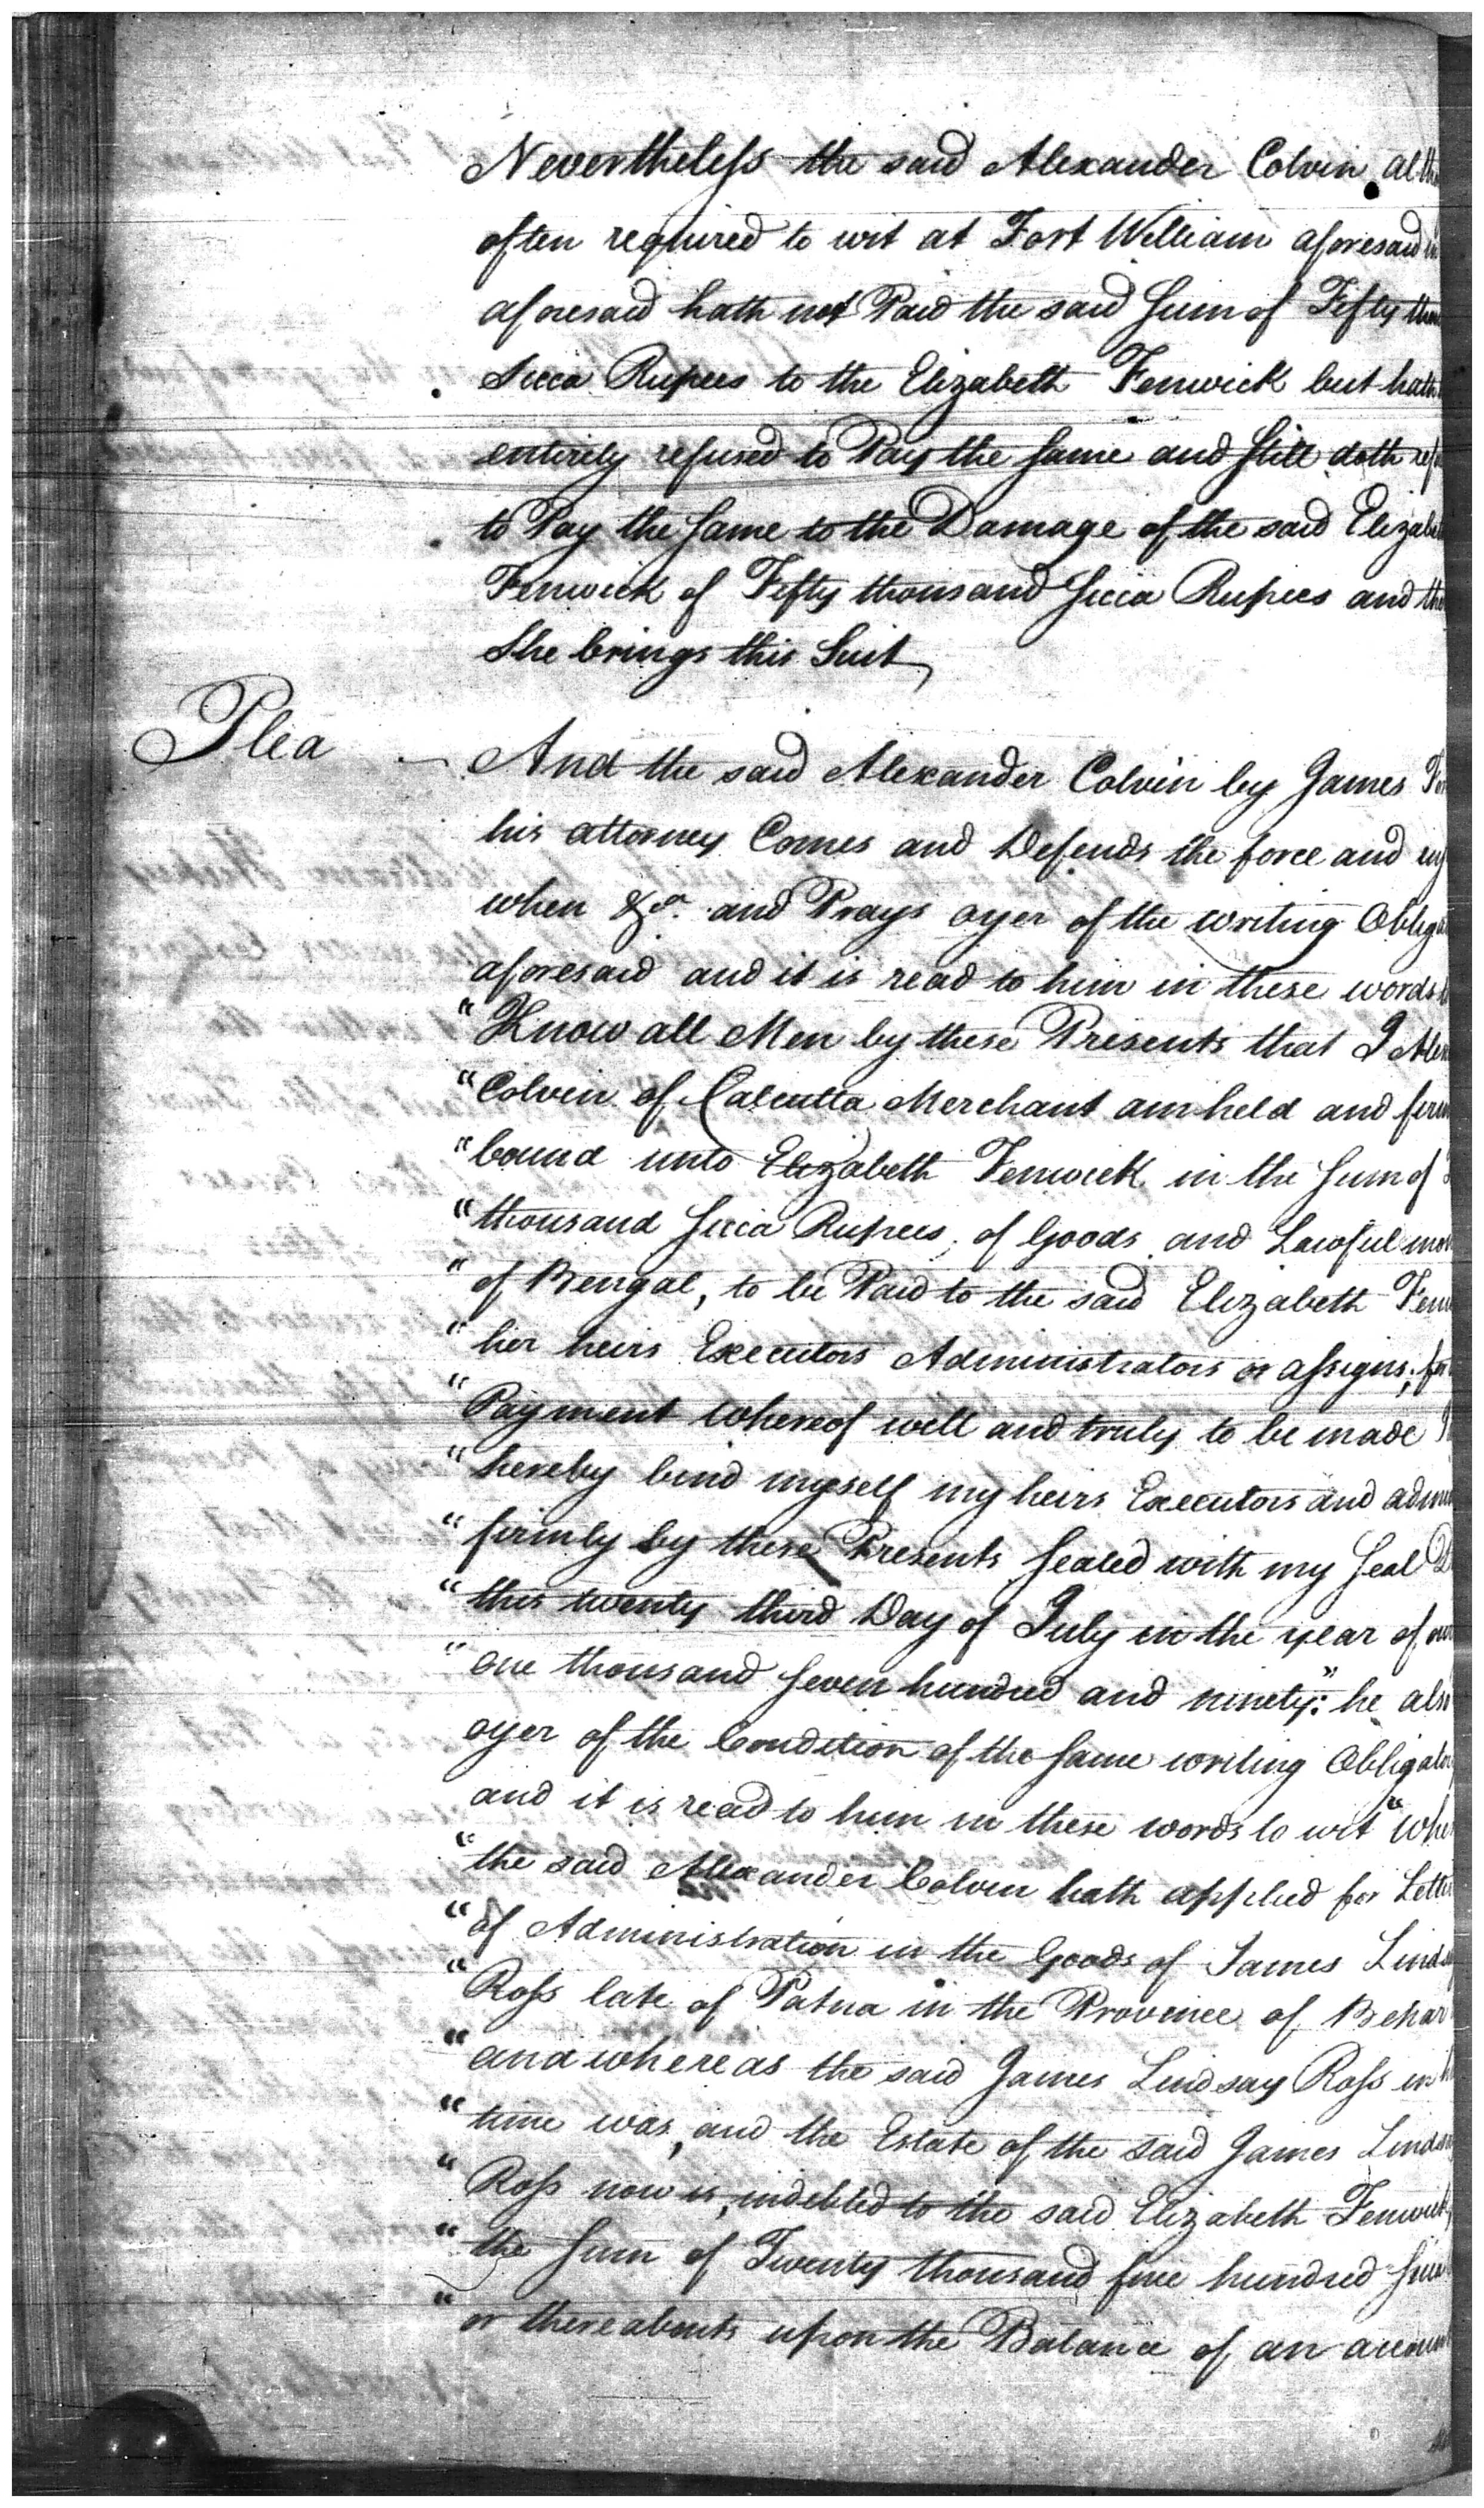 Nevertheless the said Alexander Colvin, alth
often required to wit at Fort William aforesaid in
aforesaid hath not Paid the said Sum of Fifty thou
Sicca Rupees to the Elizabeth Fenwick but hath
entirely refused to Pay the same and Still doth ref
to Pay the Same to the Damage of the said Elizabe
Fenwick of Fifty thousand Sicca Rupees and the
She brings this Suit,
Plea
And the said Alexander Colvin by James
his attorney Comes and Defends the force and inj
when &ca. and Prays oyer of the writing Obliga
aforesaid and it is read to him in these words
"Know all Men by these Presents that I Alex
"Colvin of Calcutta Merchant am held and firm
"bound unto Elizabeth Fenwick in the Sum of
"thousand Sicca Rupees, of Goods and Lawful mon
"of Bengal, to be Paid to the said Elizabeth Fenw
"her heirs Executors Administrators or assigns; for
"Payment whereof well and truly to be made I
"hereby bind myself my heirs Executors and admin
"firmly by these Presents Sealed with my Seal D
"this twenty third Day of July in the year of our
"one thousand Seven hundred and ninety": he also
oyer of the Condition of the Same writing Obligator
and it is read to him in these words to wit "Whe
"the said Alexander Colvin hath applied for Lette
"of Administration in the Goods of James Lindsa
"Ross late of Patna in the Province of Behar
"and whereas the said James Lindsay Ross in h
"time was, and the Estate of the said James Lindsa
"Ross now is, indebted to the said Elizabeth Fenwick,
"the Sum of Twenty thousand five hundred Sicca
"or thereabouts upon the Balance of an accoun